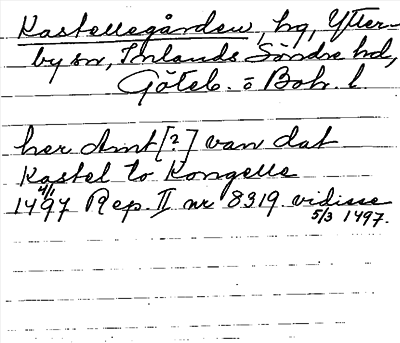 Kastellegården, hg, Ytter-
by sn, Inlands Södre hd,
Göteb. o Boh. l.
her Amt [?] van dat
Kastel to Kongelle
4/1 1497 Rep. II nr 8319. vidisse
5/3 1497.